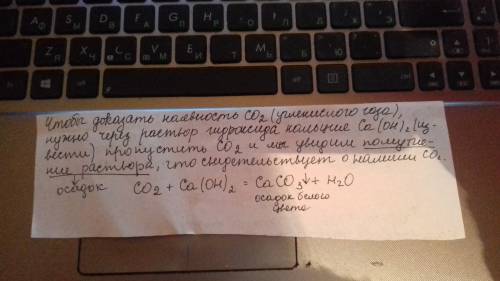 Чтобы доказать наявность CO2 (углекислого газа),
нужно через раствор гидроксида кальция Ca(OH)2 (из-
вести) пропустить CO2 и мы увидим помутне-
ние раствора, что свидетельствует о наличии CO2.
осадок CO2 + Ca(OH)2 = CaCO3↓ + H2O
осадок белого
цвета